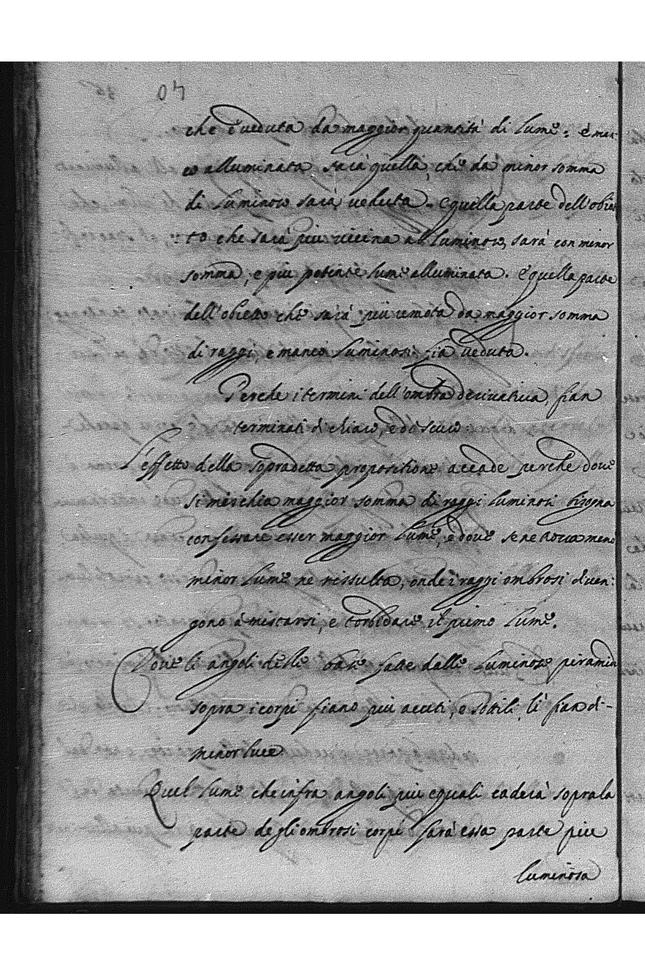 40
che è veduta da maggior quantità di lume: è man-
co alluminata sarà quella, che da minor somma
di luminoso sarà veduta. E quella parte dell'obiet
to che sarà più vicina al luminoso, sarà con minor
somma, e più potente lume alluminata. E quella parte
dell'obietto che sarà più remota da maggior somma
di raggi, e manco luminosi fia veduta.
Perche i termini dell'ombra derivativa fian
terminati di chiaro, e di scuro
L'effetto della sopradetta propositione accade perche dove
si mischia maggior somma di raggi luminosi bisogna
confessare esser maggior lume, e dove se ne trova meno
minor lume ne rissulta, onde i raggi ombrosi diven:
gono à mistarsi, e torbidare il primo lume.
Dove li angoli delle base fatte delle luminose piramid
sopra i corpi fiano più acuti, o sottili, li fian di-
minor luce
Quel lume che infra angoli più equali caderà sopra la
parte de gli ombrosi corpi sarà essa parte più
luminosa